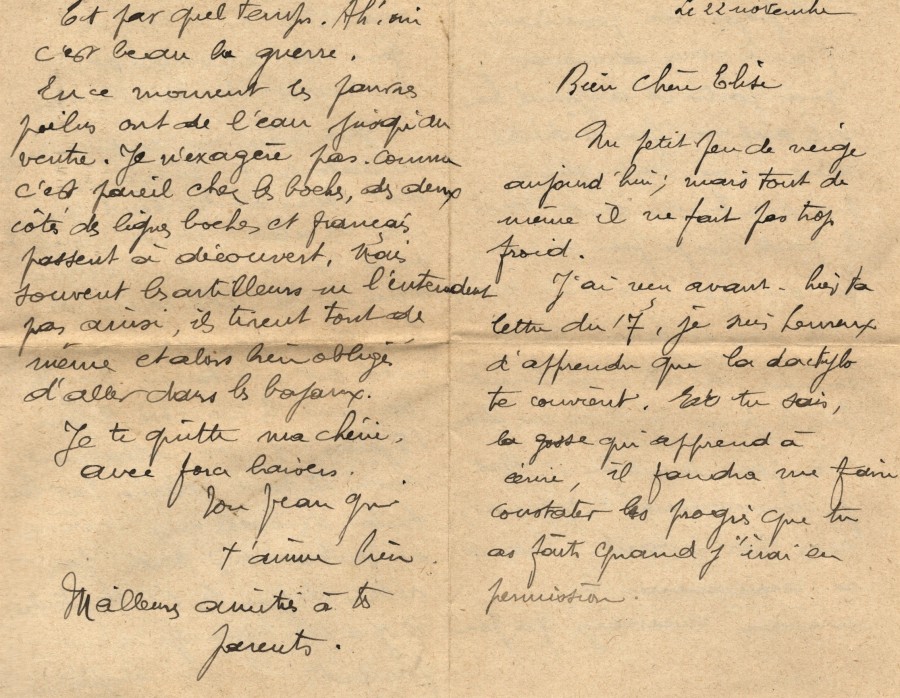 Le 22 novembre
Bien chère Elise
Un petit peu de neige
aujourd'hui; mais tout de
même il ne fait pas trop
froid.
J'ai reçu avant-hier ta
lettre du 17, je suis heureux
d'apprendre que la dactylo
te convient. Et tu sais,
la gosse qui apprend à
écrire, il faudra me faire
constater les progrès que tu
as faits quand j'irai en
permission.
Et par quel temps. Ah! oui
c'est beau la guerre.
En ce moment les pauvres
poilus ont de l'eau jusqu'au
ventre. Je n'exagère pas. comme
c'est pareil chez les boches, des deux
côtés des lignes boches et français
passent à découvert. Mais
souvent les artilleurs ne l'entendent
pas ainsi, ils tirent tout de
même et alors bien obligés
d'aller dans les boyaux.
Je te quitte ma chérie.
avec force baisers.
Ton Jean qui
t'aime bien
Meilleures amitiés à tes
parents.